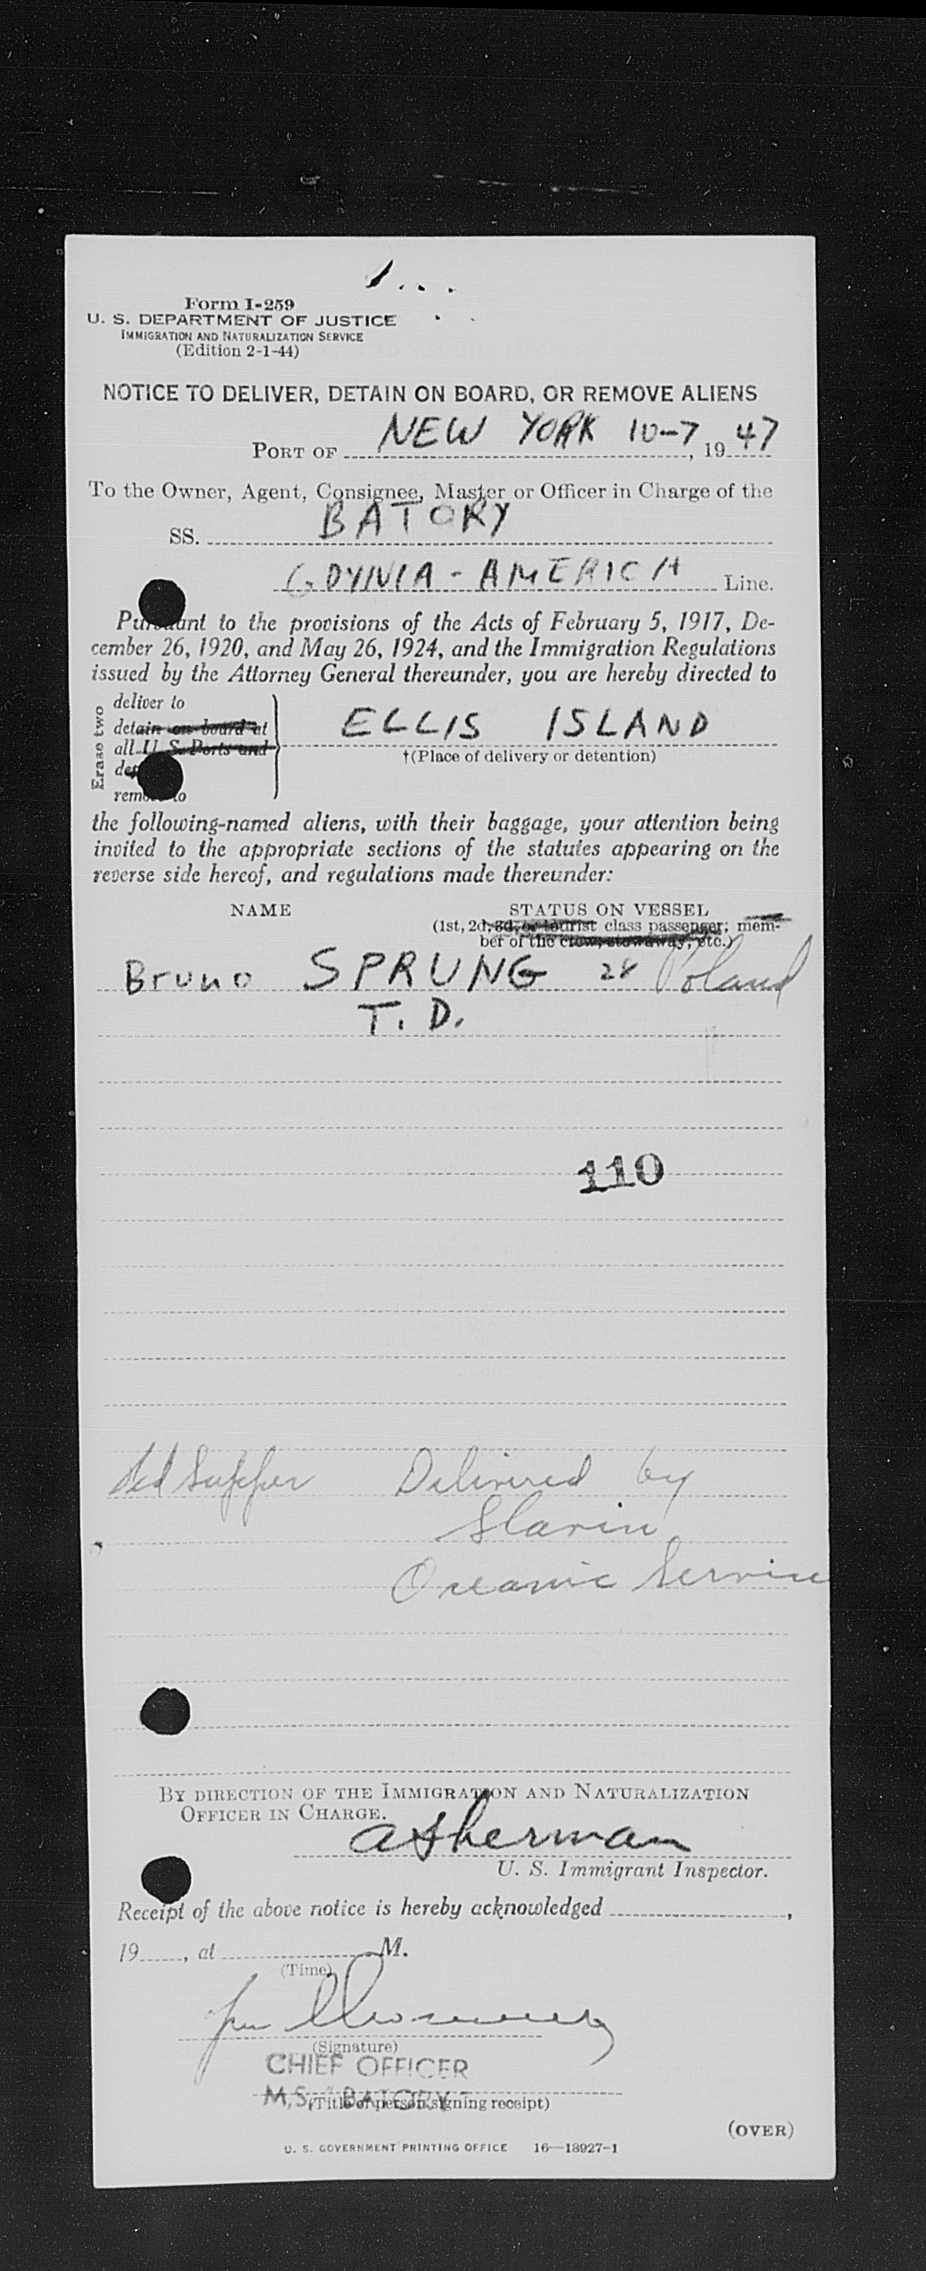 Form I-259
U. S. DEPARTMENT OF JUSTICE
IMMIGRATION AND NATURALIZATION SERVICE
(Edition 2-1-44)
NOTICE TO DELIVER, DETAIN ON BOARD, OR REMOVE ALIENS
PORT OF NEW YORK 10-7, 1947
To the Owner, Agent, Consignee, Master or Officer in Charge of the
SS. BATORY
GDYNIA-AMERICA Line.
Pursuant to the provisions of the Acts of February 5, 1917, De-
cember 26, 1920, and May 26, 1924, and the Immigration Regulations
issued by the Attorney General thereunder, you are hereby directed to
Erase two
deliver to
detain on board at
all U. S. Ports and
remove to
ELLIS ISLAND
†(Place of delivery or detention)
the following-named aliens, with their baggage, your attention being
invited to the appropriate sections of the statutes appearing on the
reverse side hereof, and regulations made thereunder:
NAME STATUS ON VESSEL
(1st, 2d, 3d, or tourist class passenger; mem-
ber of the crew, stowaway, etc.)
Bruno SPRUNG 28 Poland
T. D.
110
Supper Delivered by
Slavin
Oceanic Service
BY DIRECTION OF THE IMMIGRATION AND NATURALIZATION
OFFICER IN CHARGE.
asherman
U. S. Immigrant Inspector.
Receipt of the above notice is hereby acknowledged ,
19 , at M.
(Time)
(Signature)
CHIEF OFFICER
M.S. "BATORY"
(Title of person signing receipt)
(OVER)
U. S. GOVERNMENT PRINTING OFFICE 16—18927-1